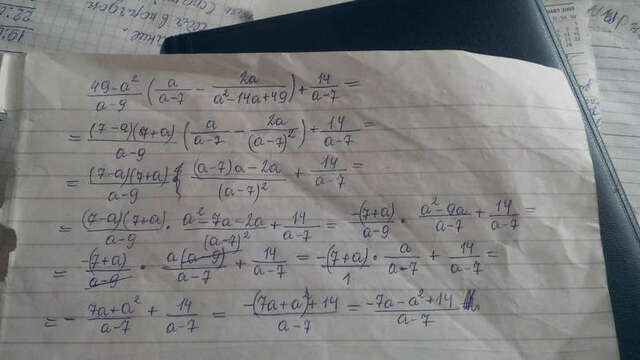 \frac{49-a^2}{a-9} \left( \frac{a}{a-7} - \frac{2a}{a^2-14a+49} \right) + \frac{14}{a-7} =
= \frac{(7-a)(7+a)}{a-9} \left( \frac{a}{a-7} - \frac{2a}{(a-7)^2} \right) + \frac{14}{a-7} =
= \frac{(7-a)(7+a)}{a-9} \cdot \frac{(a-7)a-2a}{(a-7)^2} + \frac{14}{a-7} =
= \frac{(7-a)(7+a)}{a-9} \cdot \frac{a^2-7a-2a}{(a-7)^2} + \frac{14}{a-7} = \frac{-(7+a)}{a-9} \cdot \frac{a^2-9a}{a-7} + \frac{14}{a-7} =
= \frac{-(7+a)}{a-9} \cdot \frac{a(a-9)}{a-7} + \frac{14}{a-7} = \frac{-(7+a)}{1} \cdot \frac{a}{a-7} + \frac{14}{a-7} =
= - \frac{7a+a^2}{a-7} + \frac{14}{a-7} = \frac{-(7a+a^2)+14}{a-7} = \frac{-7a-a^2+14}{a-7}